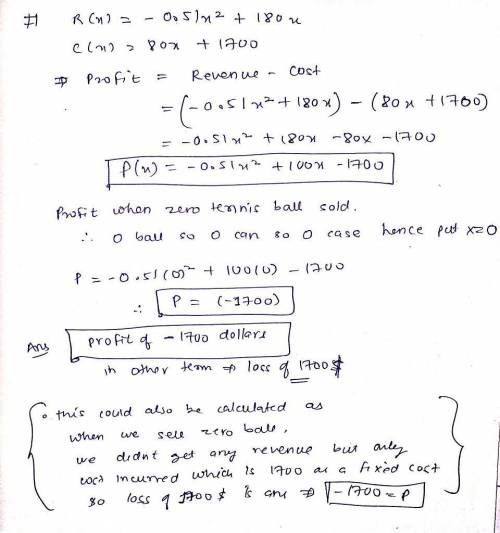 #1 R(x) = -0.51x² + 180x
C(x) = 80x + 1700
⇒ Profit = Revenue - Cost
= (-0.51x² + 180x) - (80x + 1700)
= -0.51x² + 180x - 80x - 1700
P(x) = -0.51x² + 100x - 1700
Profit when zero tennis ball sold.
∴ 0 ball so 0 can so 0 case hence put x=0
P = -0.51(0)² + 100(0) - 1700
∴ P = (-1700)
Ans profit of -1700 dollars
in other term ⇒ loss of 1700$
• this could also be calculated as
when we sell zero ball,
we didnt get any revenue but only
cost incurred which is 1700 as a fixed cost
so loss of 1700$ is ans ⇒ -1700 = P